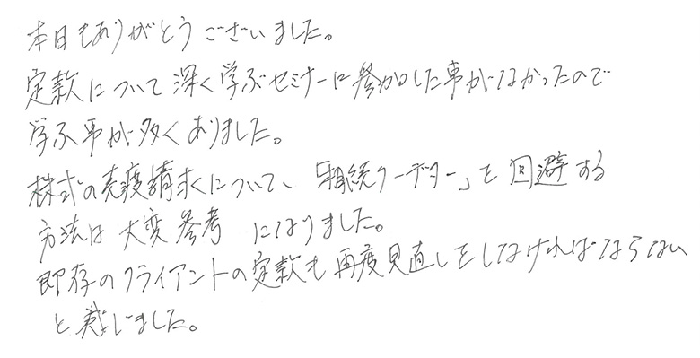 本日もありがとうございました。
定款について深く学ぶセミナーに参加した事がなかったので
学ぶ事が多くありました。
株式の売渡請求について、「相続クーデター」を回避する
方法は大変参考になりました。
既存のクライアントの定款も再度見直しをしなければならない
と感じました。